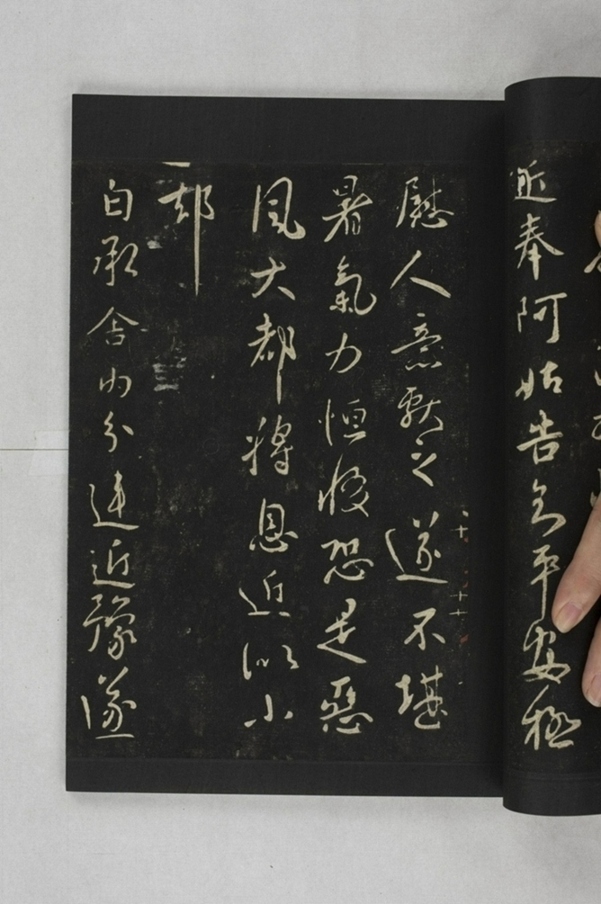 近奉阿姑告知平安極
慰人意獻之遂不堪
暑氣力恒惙恐是惡
風大都將息近似小
却
白承舍内分違近豫遂